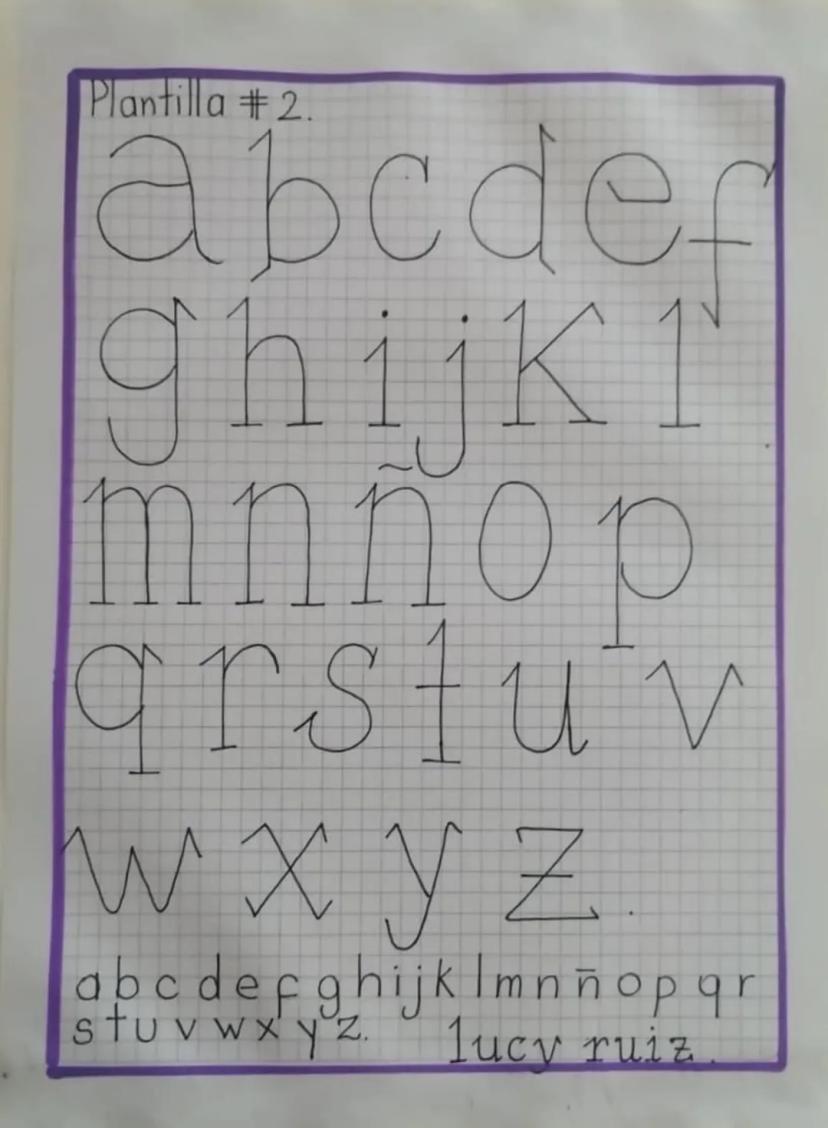 Plantilla # 2.
a b c d e f
g h i j k l
m n ñ o p
q r s t u v
w x y z.
a b c d e f g h i j k l m n ñ o p q r
s t u v w x y z.
lucy ruiz.